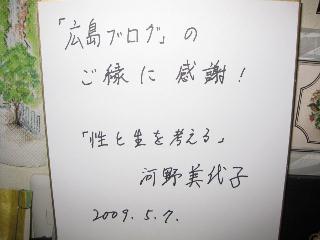 「広島ブログ」の
ご縁に感謝!
「性と生を考える」
河野美代子
2009.5.7.